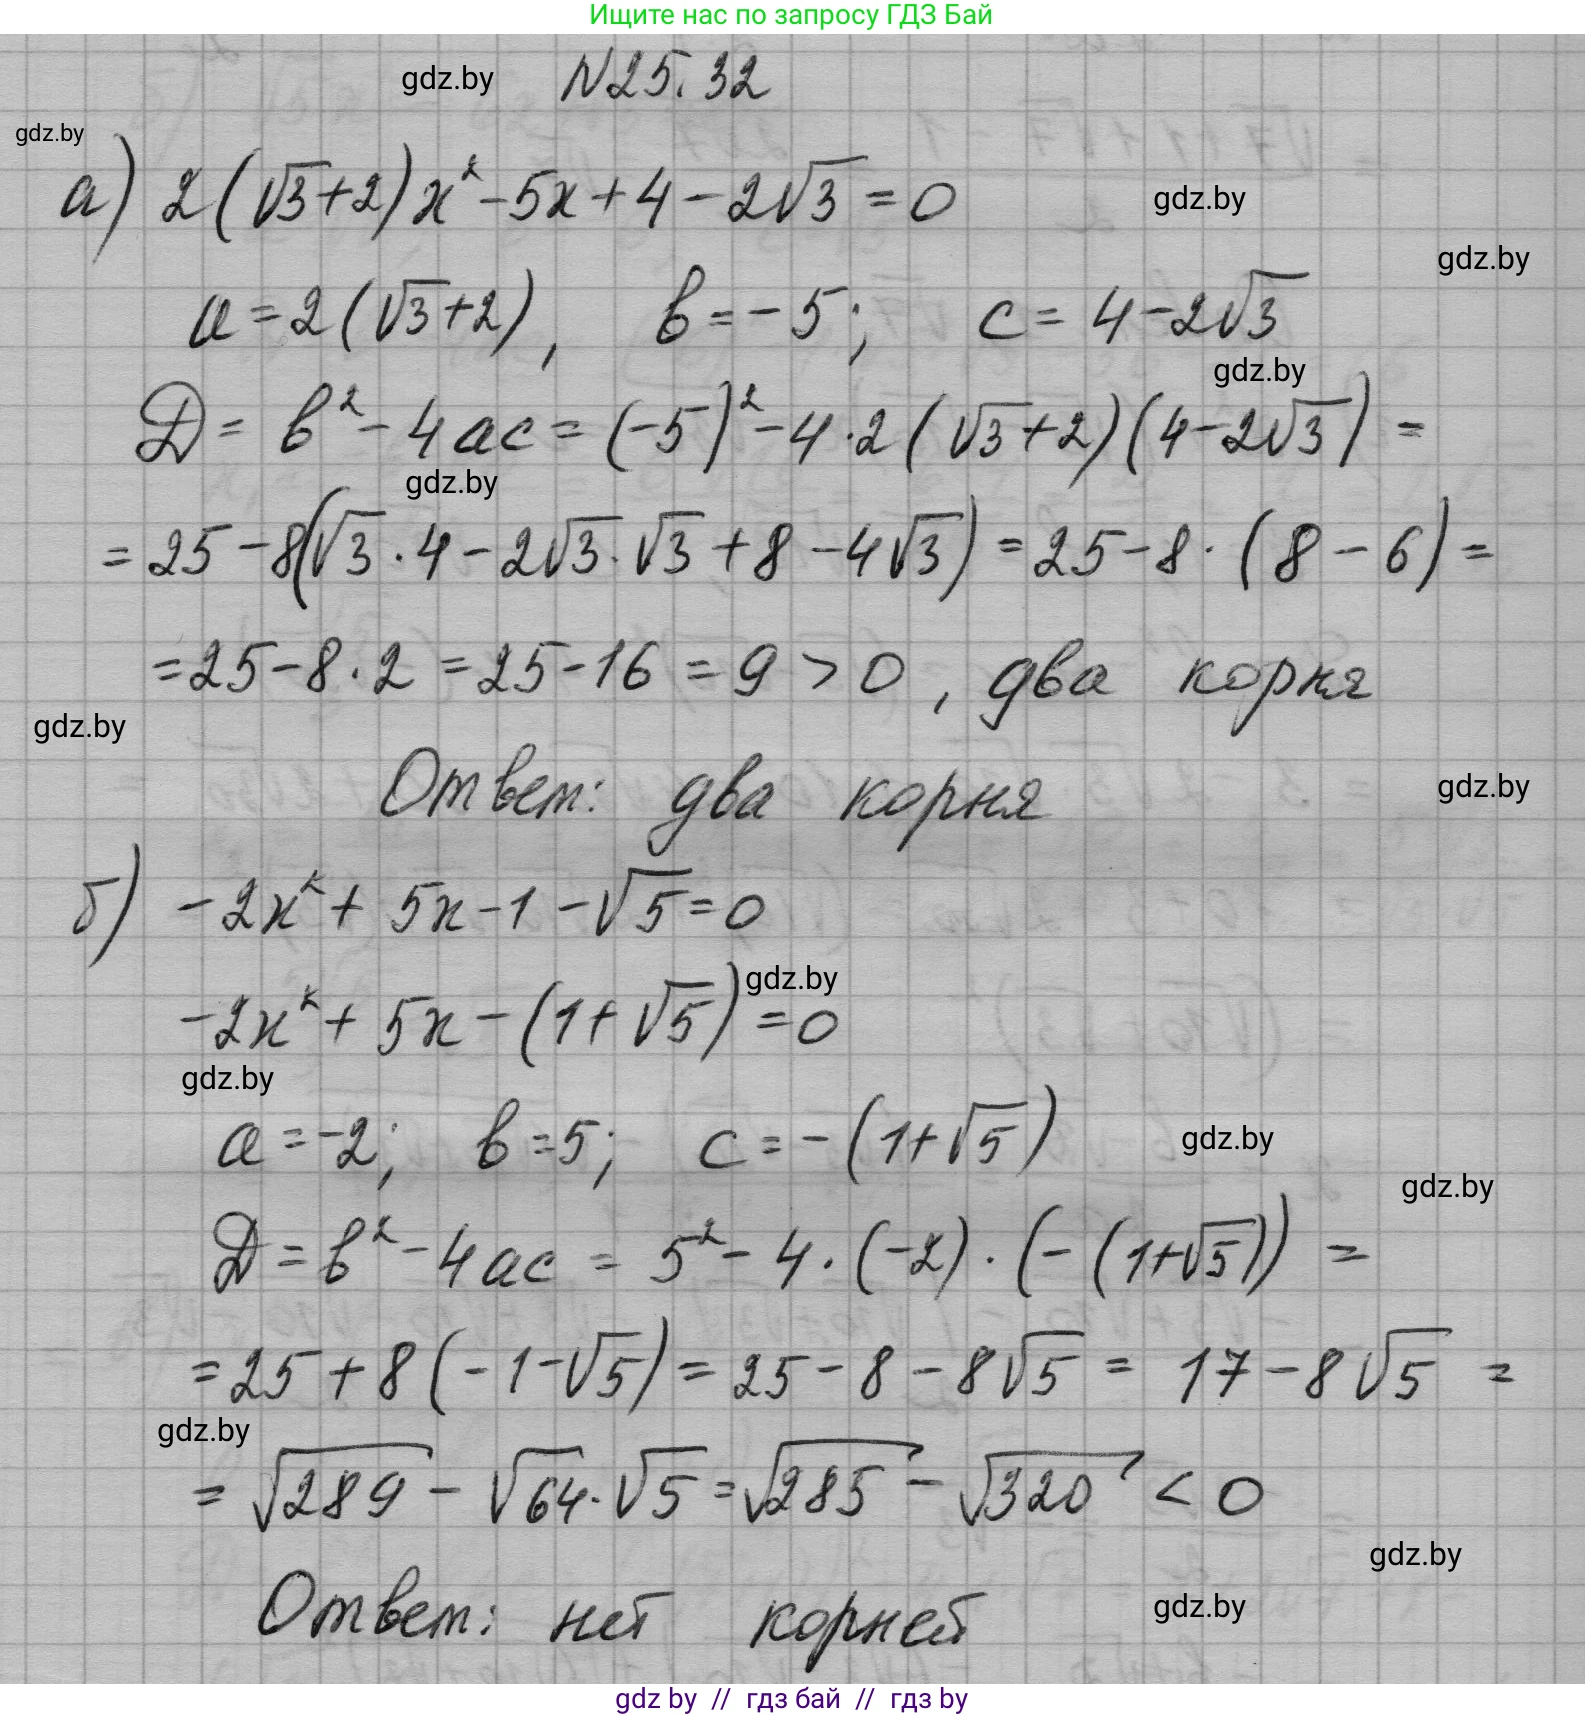 Ищите нас по запросу ГДЗ Бай
gdz.by
N25.32
gdz.by
а) 2(√3+2)x²-5x+4-2√3=0
gdz.by
gdz.by
a=2(√3+2), b=-5; c=4-2√3
gdz.by
D=b²-4ac=(-5)²-4·2(√3+2)(4-2√3)=
gdz.by
=25-8(√3·4-2√3·√3+8-4√3)=25-8·(8-6)=
=25-8·2=25-16=9>0, два корня
gdz.by
Ответ: два корня
gdz.by
б) -2x²+5x-1-√5=0
gdz.by
-2x²+5x-(1+√5)=0
gdz.by
a=-2; b=5; c=-(1+√5)
gdz.by
gdz.by
D=b²-4ac=5²-4·(-2)·(-(1+√5))=
=25+8(-1-√5)=25-8-8√5=17-8√5=
gdz.by
=√289-√64·√5=√285-√320<0
gdz.by
Ответ: нет корней
gdz.by
gdz by // гдз бай // gdz by